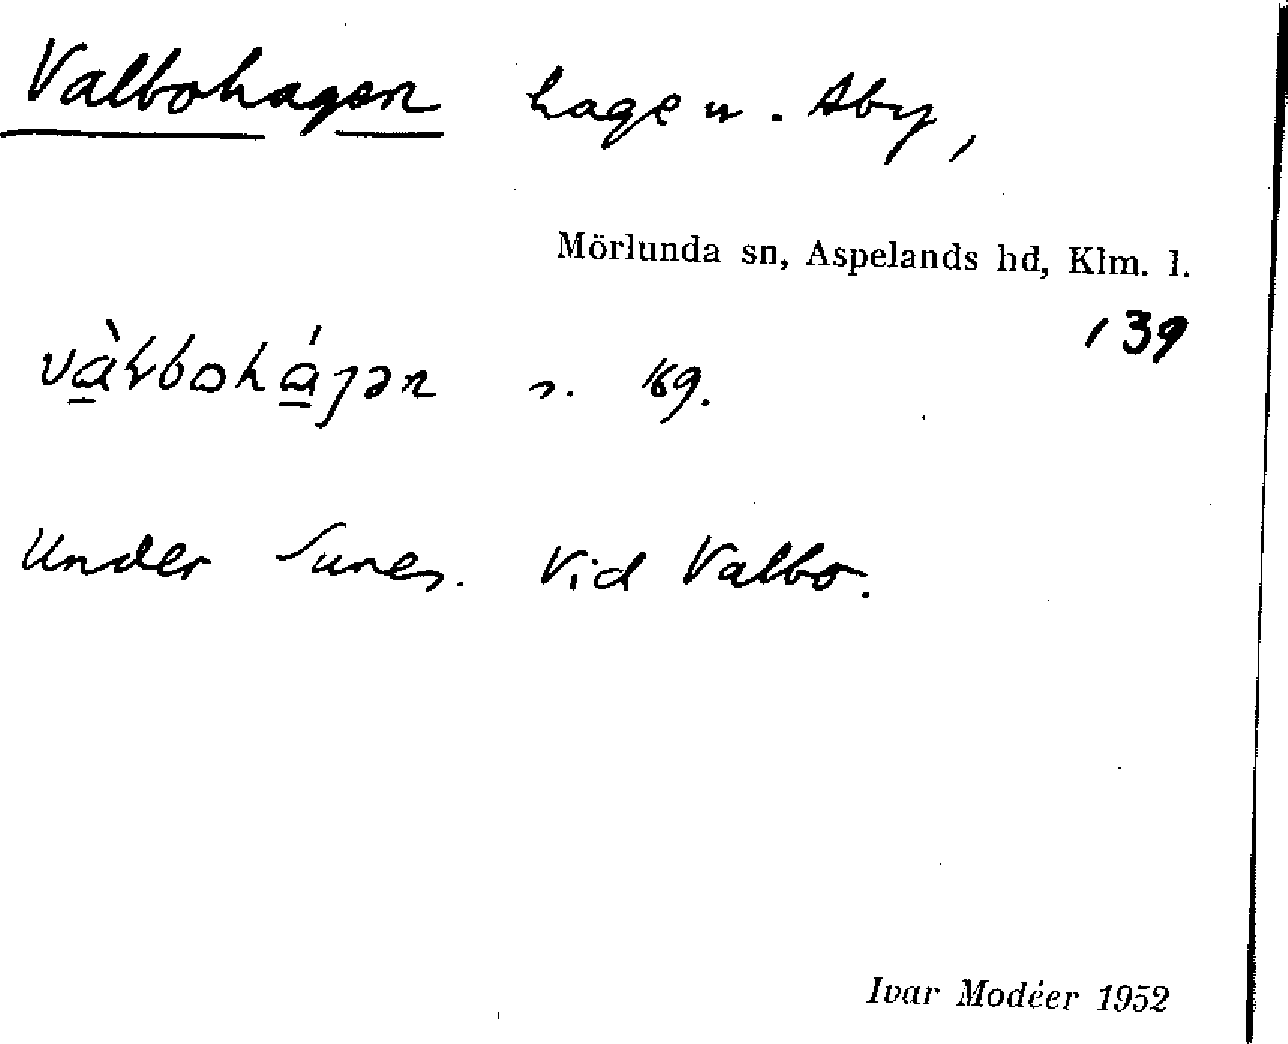 Valbohagen hage u. Åby,
Mörlunda sn, Aspelands hd, Klm. l.
139
s. 169.
Under Vid Valbo.
Ivar Modéer 1952